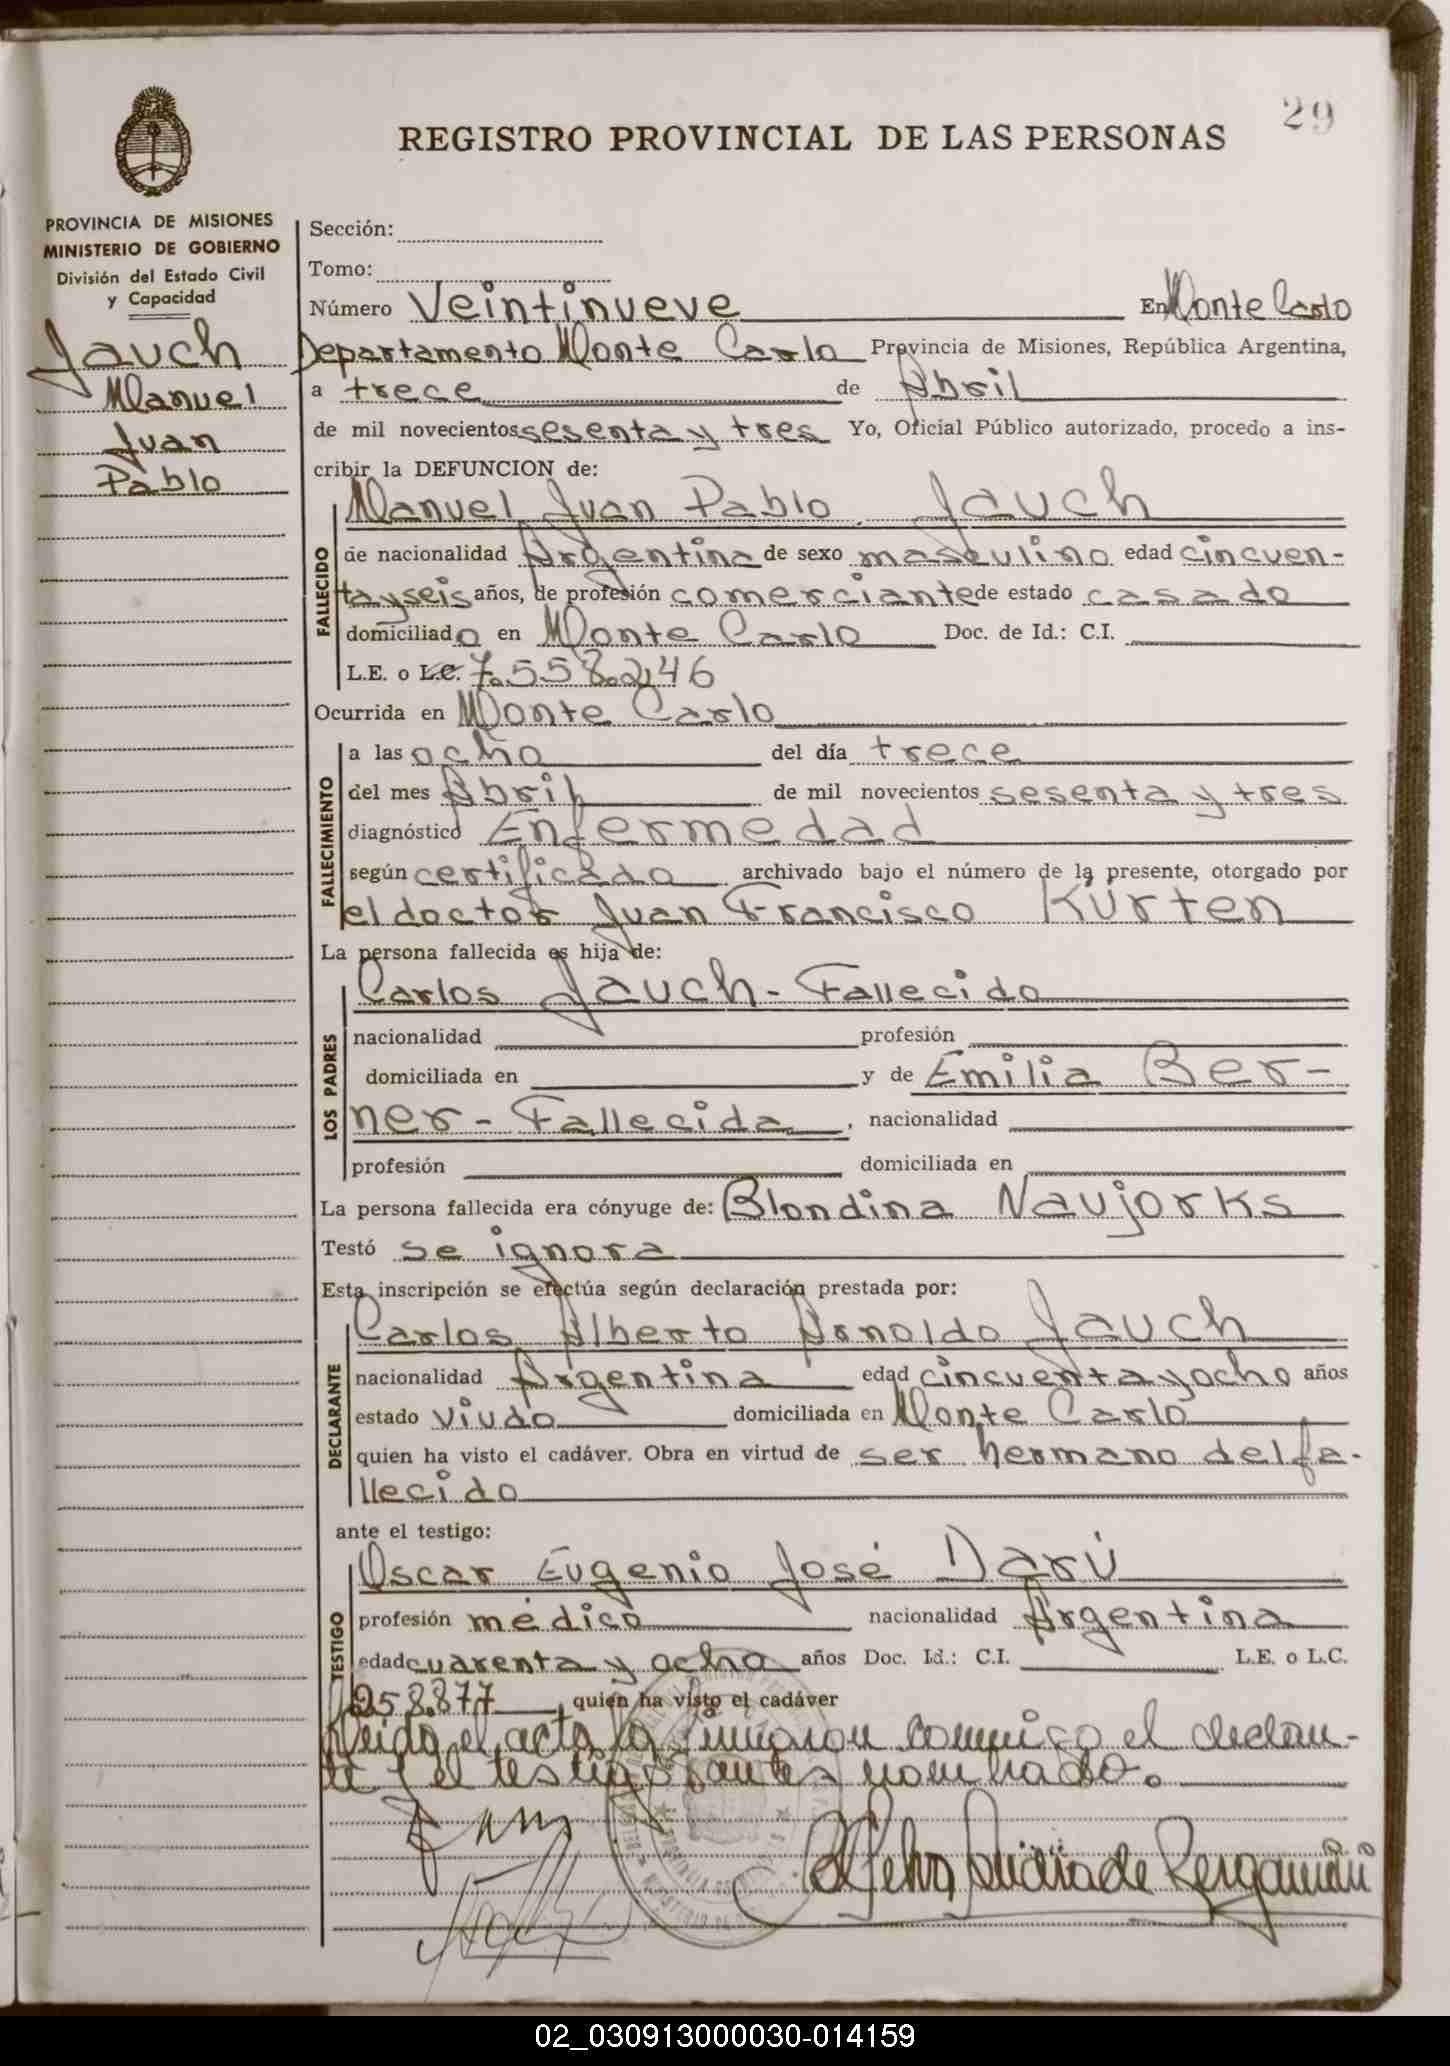 29
REGISTRO PROVINCIAL DE LAS PERSONAS
PROVINCIA DE MISIONES
MINISTERIO DE GOBIERNO
División del Estado Civil
y Capacidad
Jauch
Manuel
Juan
Pablo
Sección:
Tomo:
Número Veintinueve En Monte Carlo
Departamento Monte Carlo Provincia de Misiones, República Argentina,
a trece de Abril
de mil novecientos sesenta y tres Yo, Oficial Público autorizado, procedo a ins-
cribir la DEFUNCION de:
FALLECIDO
Manuel Juan Pablo Jauch
de nacionalidad Argentina de sexo masculino edad cincuen-
tayseis años, de profesión comerciante de estado casado
domiciliado en Monte Carlo Doc. de Id.: C.I.
L.E. o L.C. 7.558.246
Ocurrida en Monte Carlo
FALLECIMIENTO
a las ocho del día trece
del mes Abril de mil novecientos sesenta y tres
diagnóstico Enfermedad
según certificado archivado bajo el número de la presente, otorgado por
el doctor Juan Francisco Kürten
La persona fallecida es hija de:
LOS PADRES
Carlos Jauch - Fallecido
nacionalidad profesión
domiciliada en y de Emilia Ber-
ner - Fallecida, nacionalidad
profesión domiciliada en
La persona fallecida era cónyuge de: Blondina Naujorks
Testó se ignora
Esta inscripción se efectúa según declaración prestada por:
DECLARANTE
Carlos Alberto Arnoldo Jauch
nacionalidad Argentina edad cincuenta y ocho años
estado viudo domiciliada en Monte Carlo
quien ha visto el cadáver. Obra en virtud de ser hermano del fa-
llecido
ante el testigo:
TESTIGO
Oscar Eugenio José Darú
profesión médico nacionalidad Argentina
edad cuarenta y ocho años Doc. Id.: C.I. L.E. o L.C.
258.877, quien ha visto el cadáver
Leido el acta la firmaron conmigo el declaran-
te y el testigo antes nombrado.
02_030913000030-014159